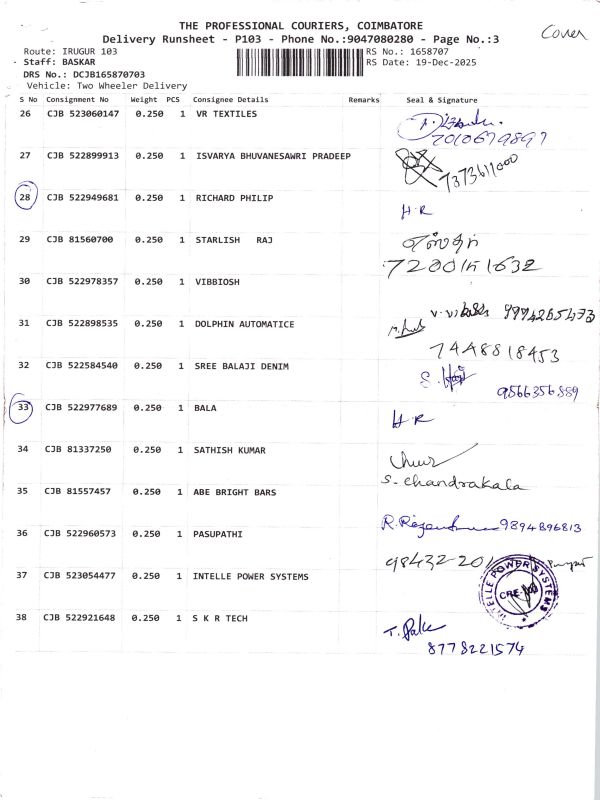 THE PROFESSIONAL COURIERS, COIMBATORE
Cover
Delivery Runsheet - P103 - Phone No.:9047080280 - Page No.:3
Route: IRUGUR 103 RS No.: 1658707
Staff: BASKAR RS Date: 19-Dec-2025
DRS No.: DCJB165870703
Vehicle: Two Wheeler Delivery
S No Consignment No Weight PCS Consignee Details Remarks Seal & Signature
26 CJB 523060147 0.250 1 VR TEXTILES
2010679897
27 CJB 522899913 0.250 1 ISVARYA BHUVANESAWRI PRADEEP
7373611000
28 CJB 522949681 0.250 1 RICHARD PHILIP
H R
29 CJB 81560700 0.250 1 STARLISH RAJ
எஸ்தர்
7200151632
30 CJB 522978357 0.250 1 VIBBIOSH
31 CJB 522898535 0.250 1 DOLPHIN AUTOMATICE
7448818453
32 CJB 522584540 0.250 1 SREE BALAJI DENIM
9566356889
33 CJB 522977689 0.250 1 BALA
H R
34 CJB 81337250 0.250 1 SATHISH KUMAR
S. chandrakala
35 CJB 81557457 0.250 1 ABE BRIGHT BARS
36 CJB 522960573 0.250 1 PASUPATHI
9894896813
98432-201
37 CJB 523054477 0.250 1 INTELLE POWER SYSTEMS
INTELLE POWER SYSTEMS
38 CJB 522921648 0.250 1 S K R TECH
8778221574